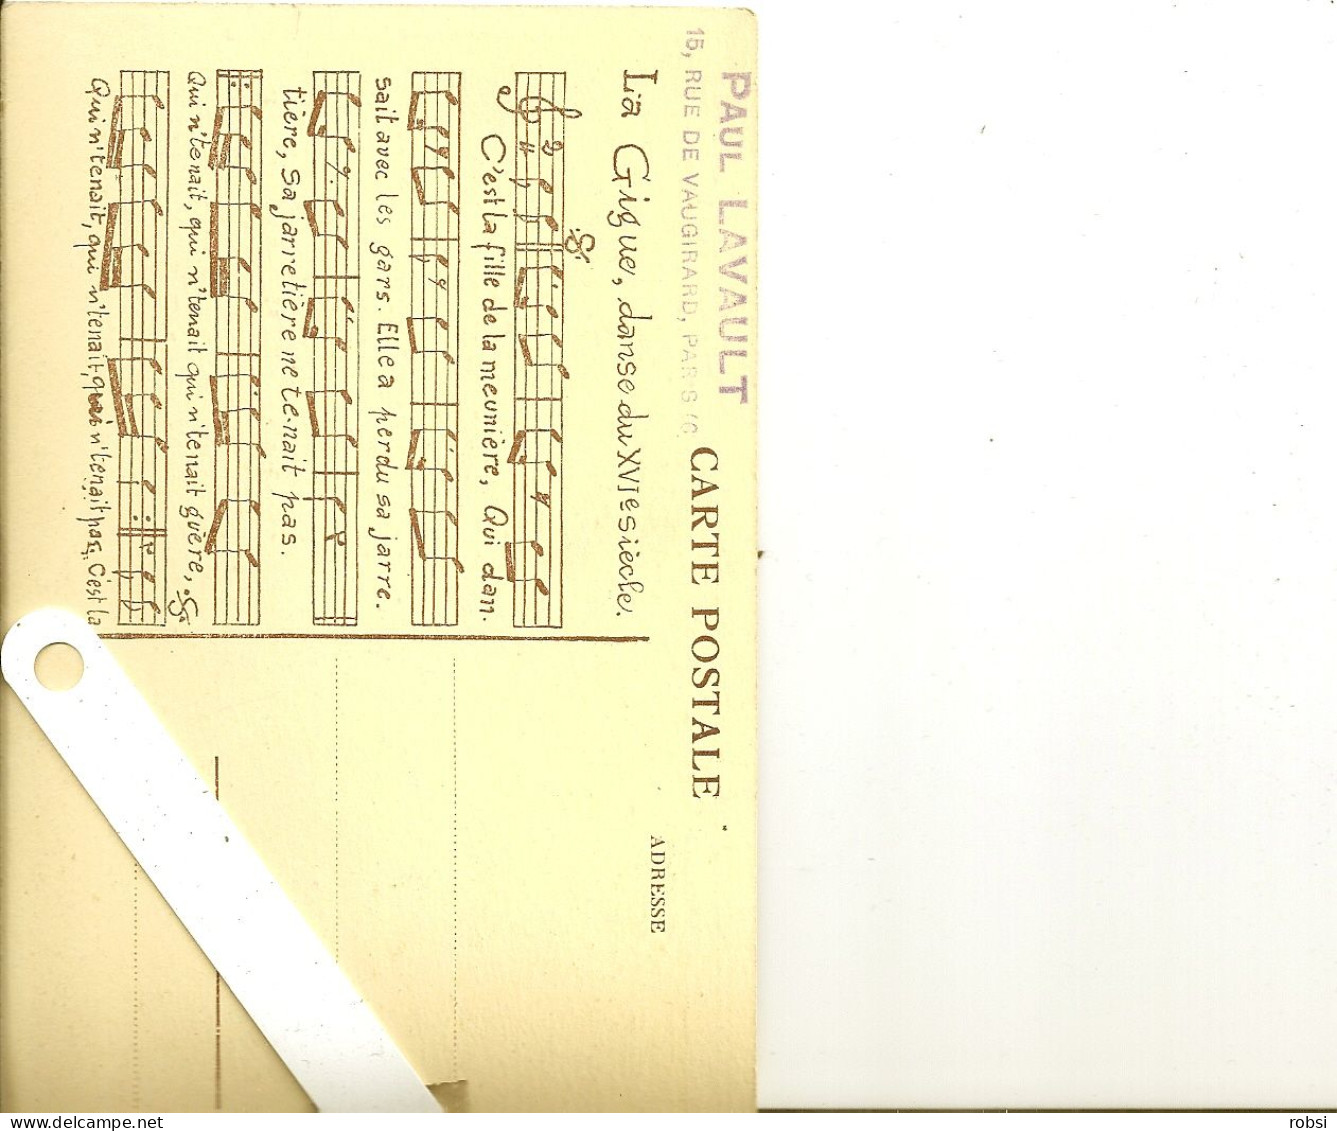 PAUL LAVAULT
15, RUE DE VAUGIRARD, PARIS
CARTE POSTALE
ADRESSE
La Gigue, danse du XVIe siècle.
C'est la fille de la meunière, Qui dan.
sait avec les gars. Elle a perdu sa jarre.
tière, Sa jarretière ne te.nait pas.
Qui n'tenait, qui n'tenait qui n'tenait guère,
Qui n'tenait, qui n'tenait, qui n'tenait pas, C'est la
robsi